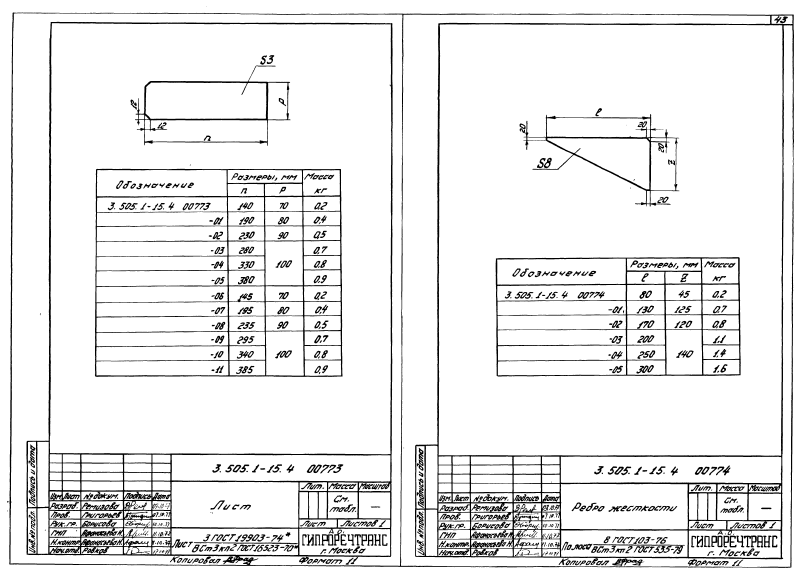 43
S3
P
12
12
n
Обозначение Размеры, мм Масса
n P кг
3.505.1-15.4 00773 140 70 0,2
-01 190 80 0,4
-02 230 90 0,5
-03 280 0,7
-04 330 100 0,8
-05 380 0,9
-06 145 70 0,2
-07 195 80 0,4
-08 235 90 0,5
-09 295 0,7
-10 340 100 0,8
-11 385 0,9
3.505.1-15.4 00773
Лит. Масса Масштаб
Изм. Лист № докум. Подпись Дата
Разраб. Ремизова
Пров. Григорьев
Рук. гр. Борисова
ГИП Афанасьева Н.
Н.контр. Афанасьева Н.
Нач.отд. Ровков
Лист
См. табл. —
Лист Листов 1
Лист 3 ГОСТ 19903-74*
ВСт3кп2 ГОСТ 16523-70*
ГИПРОРЕЧТРАНС
г. Москва
Копировал
Формат 11
Инв. № подл. Подпись и дата
ℓ
20
20
20
S8
z
20
Обозначение Размеры, мм Масса
ℓ z кг
3.505.1-15.4 00774 80 45 0,2
-01 130 125 0,7
-02 170 120 0,8
-03 200 1,1
-04 250 140 1,4
-05 300 1,6
3.505.1-15.4 00774
Лит. Масса Масштаб
Изм. Лист № докум. Подпись Дата
Разраб. Ремизова
Пров. Григорьев
Рук. гр. Борисова
ГИП Афанасьева Н.
Н.контр. Афанасьева Н.
Нач.отд. Ровков
Ребро жесткости
См. табл. —
Лист Листов 1
Полоса 8 ГОСТ 103-76
ВСт3кп2 ГОСТ 535-79
ГИПРОРЕЧТРАНС
г. Москва
Копировал
Формат 11
Инв. № подл. Подпись и дата